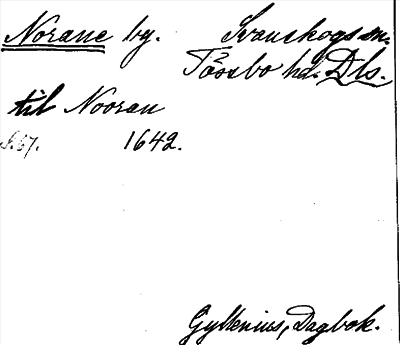 Norane by. Svanskogs sn.
Tössbo hd. Dls.
til Nooran
S. 67. 1642.
Gyllenius, Dagbok.